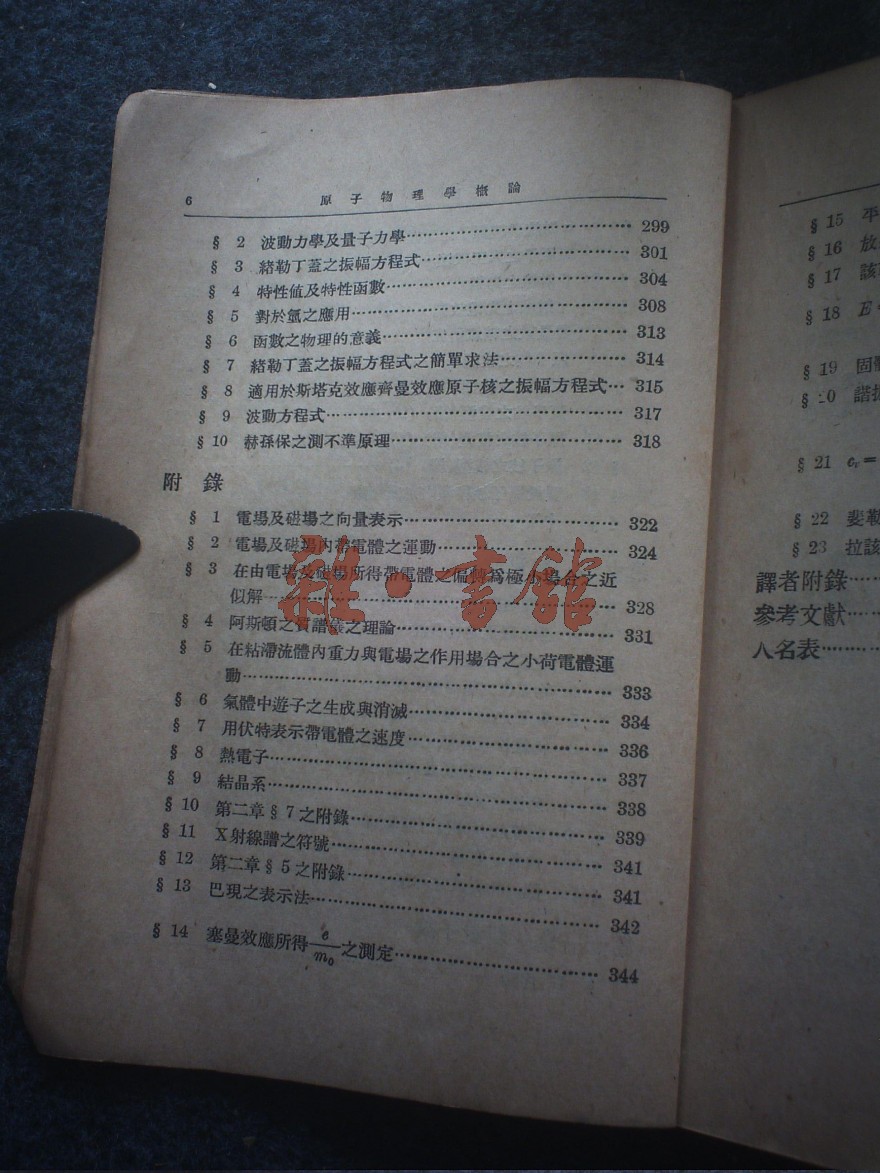 6 原子物理學概論
§ 2 波動力學及量子力學 299
§ 3 緒勒丁蓋之振幅方程式 301
§ 4 特性值及特性函數 304
§ 5 對於氫之應用 308
§ 6 函數之物理的意義 313
§ 7 緒勒丁蓋之振幅方程式之簡單求法 314
§ 8 適用於斯塔克效應齊曼效應原子核之振幅方程式 315
§ 9 波動方程式 317
§ 10 赫孫保之測不準原理 318
附錄
§ 1 電場及磁場之向量表示 322
§ 2 電場及磁場內帶電體之運動 324
§ 3 在由電場及磁場所得帶電體之偏轉爲極小場合之近
似解 328
§ 4 阿斯頓之質譜儀之理論 331
§ 5 在粘滯流體內重力與電場之作用場合之小荷電體運
動 333
§ 6 氣體中遊子之生成與消滅 334
§ 7 用伏特表示帶電體之速度 336
§ 8 熱電子 337
§ 9 結晶系 338
§ 10 第二章§7之附錄 339
§ 11 X射線譜之符號 341
§ 12 第二章§5之附錄 341
§ 13 巴現之表示法 342
§ 14 塞曼效應所得 e/m₀ 之測定 344
雜·書館
§ 15 平
§ 16 放
§ 17 該
§ 18 E
§ 19 固體
§ 20 諧振
§ 21 cᵥ=
§ 22 斐勒
§ 23 拉該
譯者附錄
參考文獻
人名表